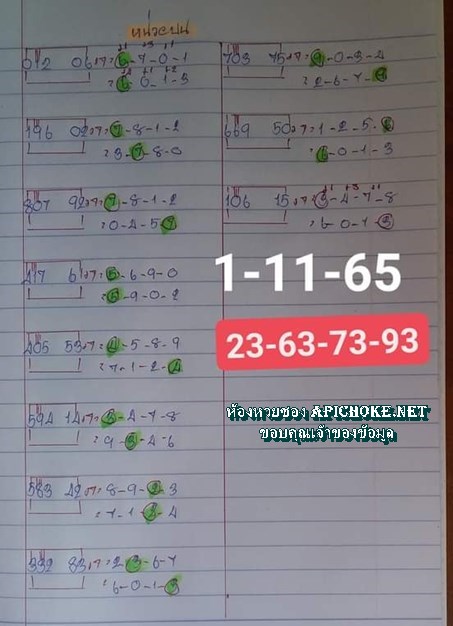 หน่วยบน
072 06+7=6-7-0-1
=6-0-1-3
196 02+7=7-8-1-2
=3-7-8-0
807 92+7=7-8-1-2
=0-4-5-7
417 61+7=5-6-9-0
=5-9-0-2
405 53+7=4-5-8-9
=7-1-2-4
594 14+7=3-4-7-8
=9-3-4-6
583 42+7=8-9-2-3
=7-1-2-4
332 83+7=2-3-6-7
=6-0-1-3
703 75+7=9-0-3-4
=2-6-7-9
669 50+7=1-2-5-6
=6-0-1-3
106 15+7=3-4-7-8
=6-0-1-3
1-11-65
23-63-73-93
ห้องหวยของ APICHOKE.NET
ขอบคุณเจ้าของข้อมูล